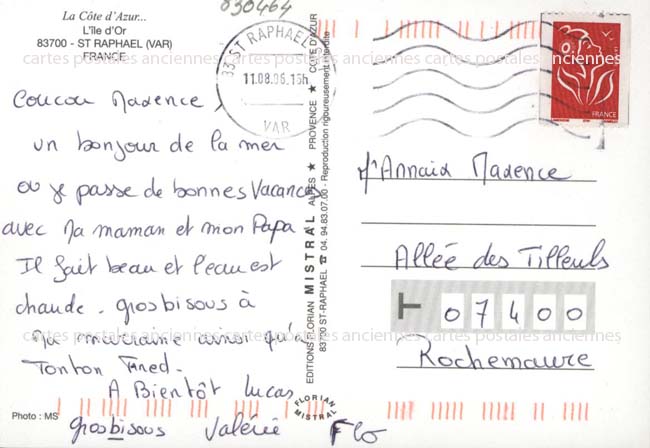 030464
La Côte d'Azur...
L'île d'Or
83700 - ST RAPHAEL (VAR)
FRANCE
cartes postales anciennes cartes postales anciennes cartes postales anciennes
83 ST RAPHAEL
11.08.06.15h
VAR
FRANCE
Coucou Maxence,
un bonjour de la mer
où je passe de bonnes Vacances
avec Ma maman et mon Papa
Il fait beau et l'eau est
chaude. grosbisous à
Ma marraine ainsi qu'à
Tonton Fred.
A Bientôt Lucas
grosbisous Valérie Flo
Photo : MS
EDITIONS FLORIAN MISTRAL ALPES ★ PROVENCE ★ COTE D'AZUR
83700 ST-RAPHAEL ☎ 04.94.83.07.00 - Reproduction rigoureusement interdite
FLORIAN
MISTRAL
Mr Annaix Maxence
Allée des Tilleuls
07400
Rochemaure
cartes postales anciennes cartes postales anciennes cartes postales anciennes